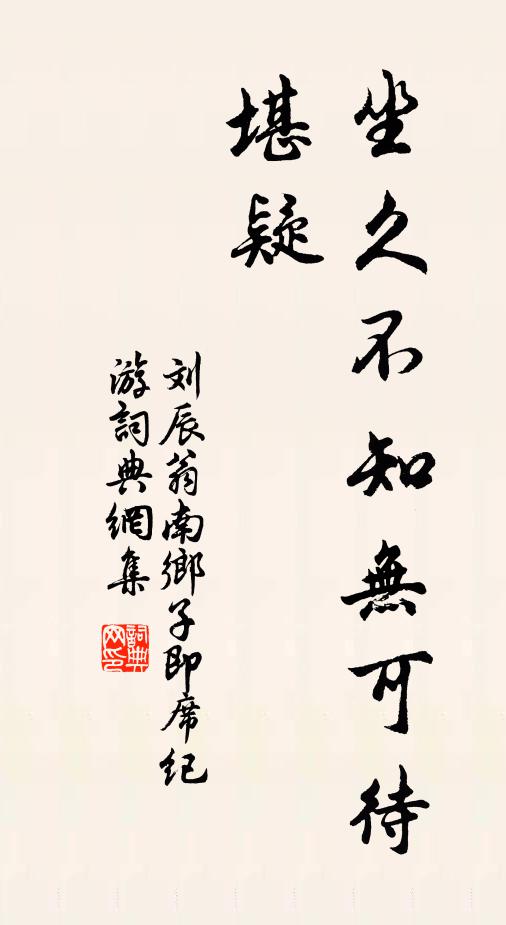 坐久不知無可待
堪疑
刘辰翁南鄉子即席纪
游詞典網集
詞典网印